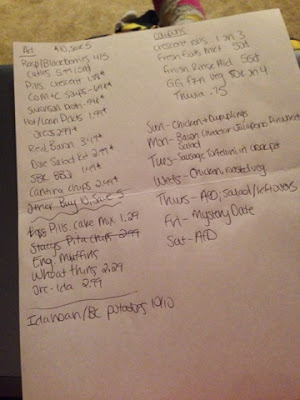 Ad $10, save 5
Rasp/Blackberries 4/5
Cuties 5.99 (5#)
Pills. Crescent 1.78*
Com+C Soups - 64*
Swanson broth .94*
Hot/Lean Pockets 1.99*
Orcs 2.99*
Red Baron 3.49*
Dole Salad Kit 2.99*
SBC BBQ 1.49*
Cantina chips 2.49*
Other Buy 10, save 5
Eggs Pills. cake mix 1.29
Stacys Pita chips 2.99
Eng. Muffins
Wheat thins 2.29
Ore-Ida 2.99
Idahoan/BC potatoes 10/10
Coupons
Crescent rolls 1 on 3
Fresh Eats Mkt 50¢
Finish Rinse Aid 55¢
GG Fzn Veg 50¢ on 4
Thurs .75
Sun - Chicken + Dumplings
Mon - Bacon Cheddar Jalapeno
Salad
Tues - Sausage in crockpot
Weds - Chicken, roasted veg
Thurs - AFD, salad/leftovers
Fri - Mystery Date
Sat - AFD